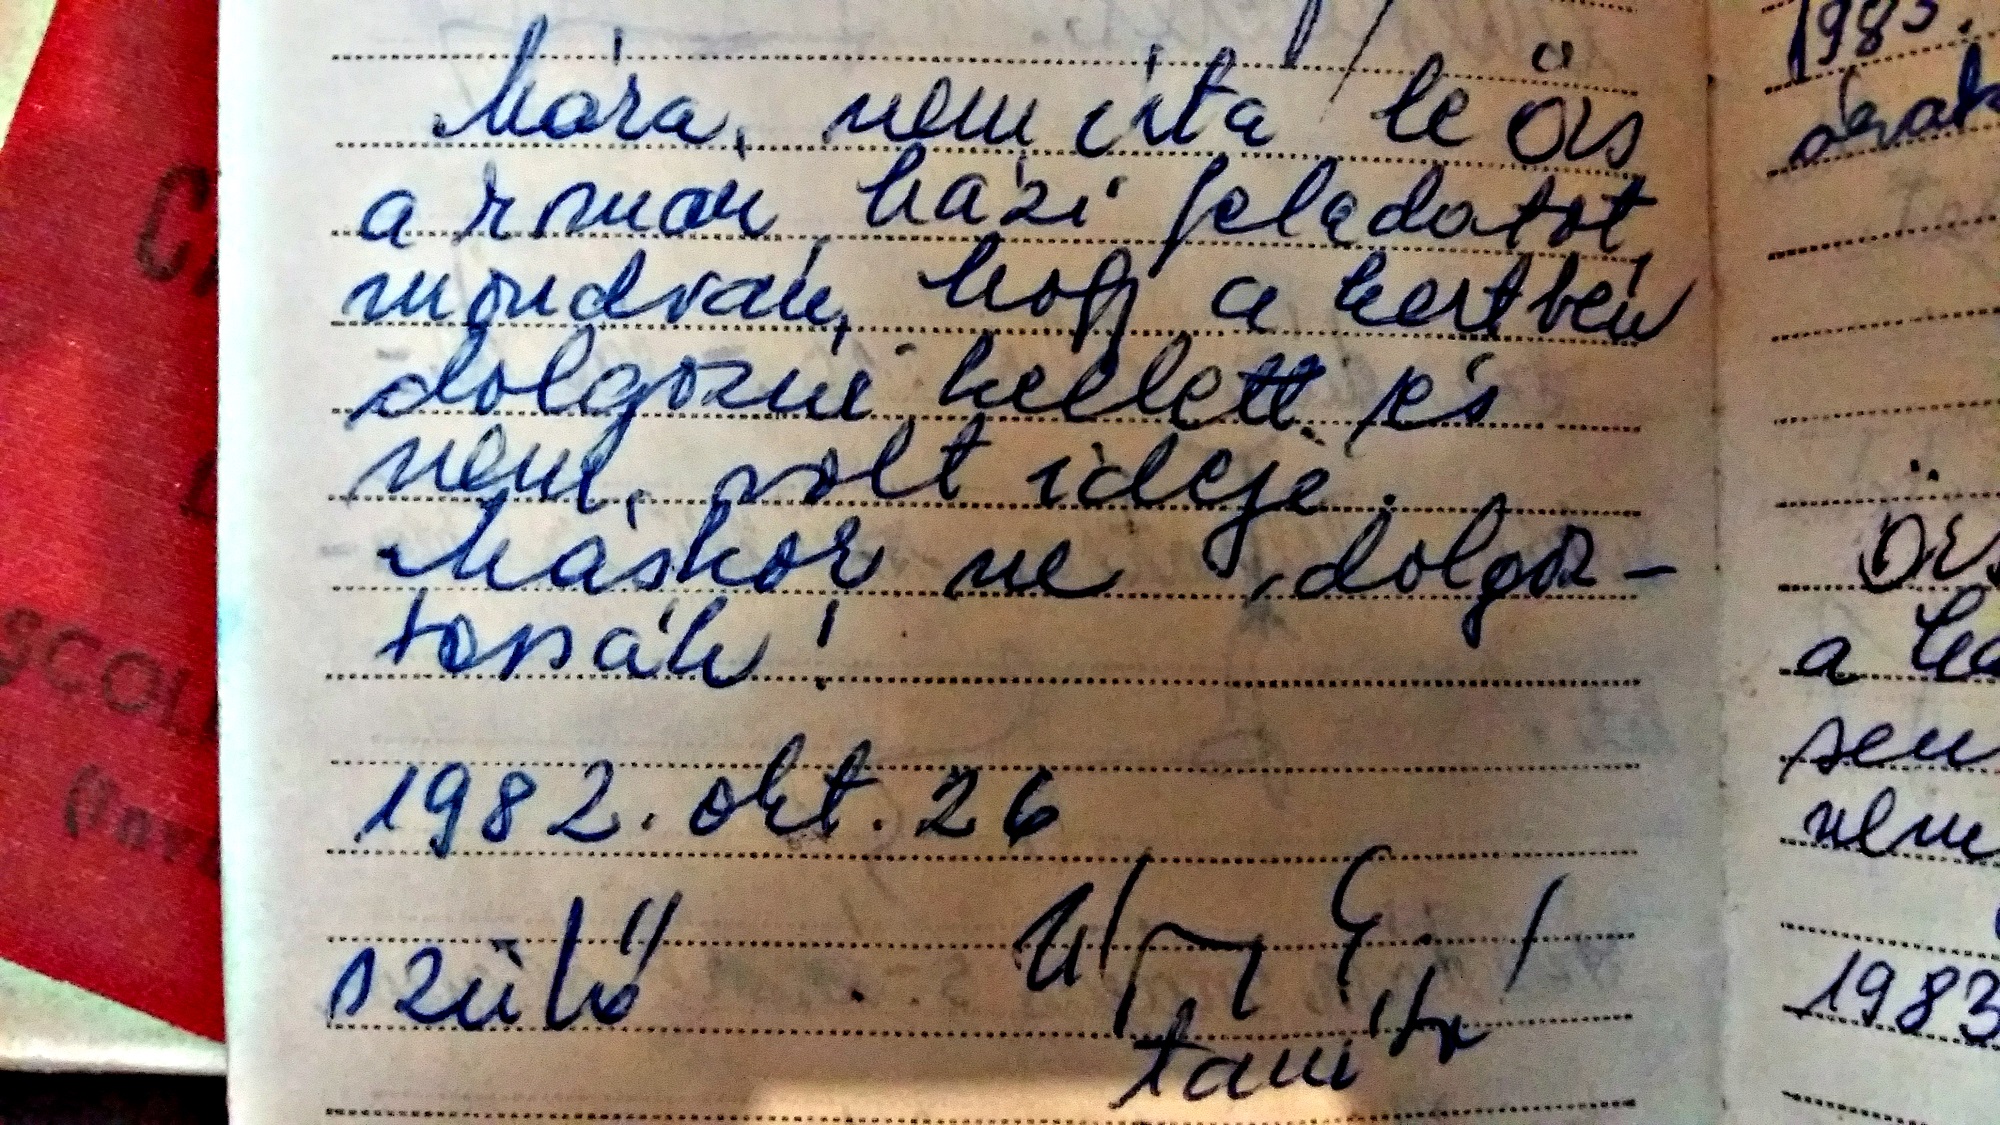 Mára nem írta le Örs
a román házi feladatot
mondván, hogy a kertben
dolgozni kellett és
nem volt ideje.
Máskor ne dolgoz-
tassák!
1982. okt. 26
szülő
tanító
1983.
Örs
a
nem
1983